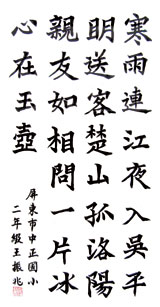 寒雨連江夜入吳平
明送客楚山孤洛陽
親友如相問一片冰
心在玉壺
屏東市中正國小
二年級王振